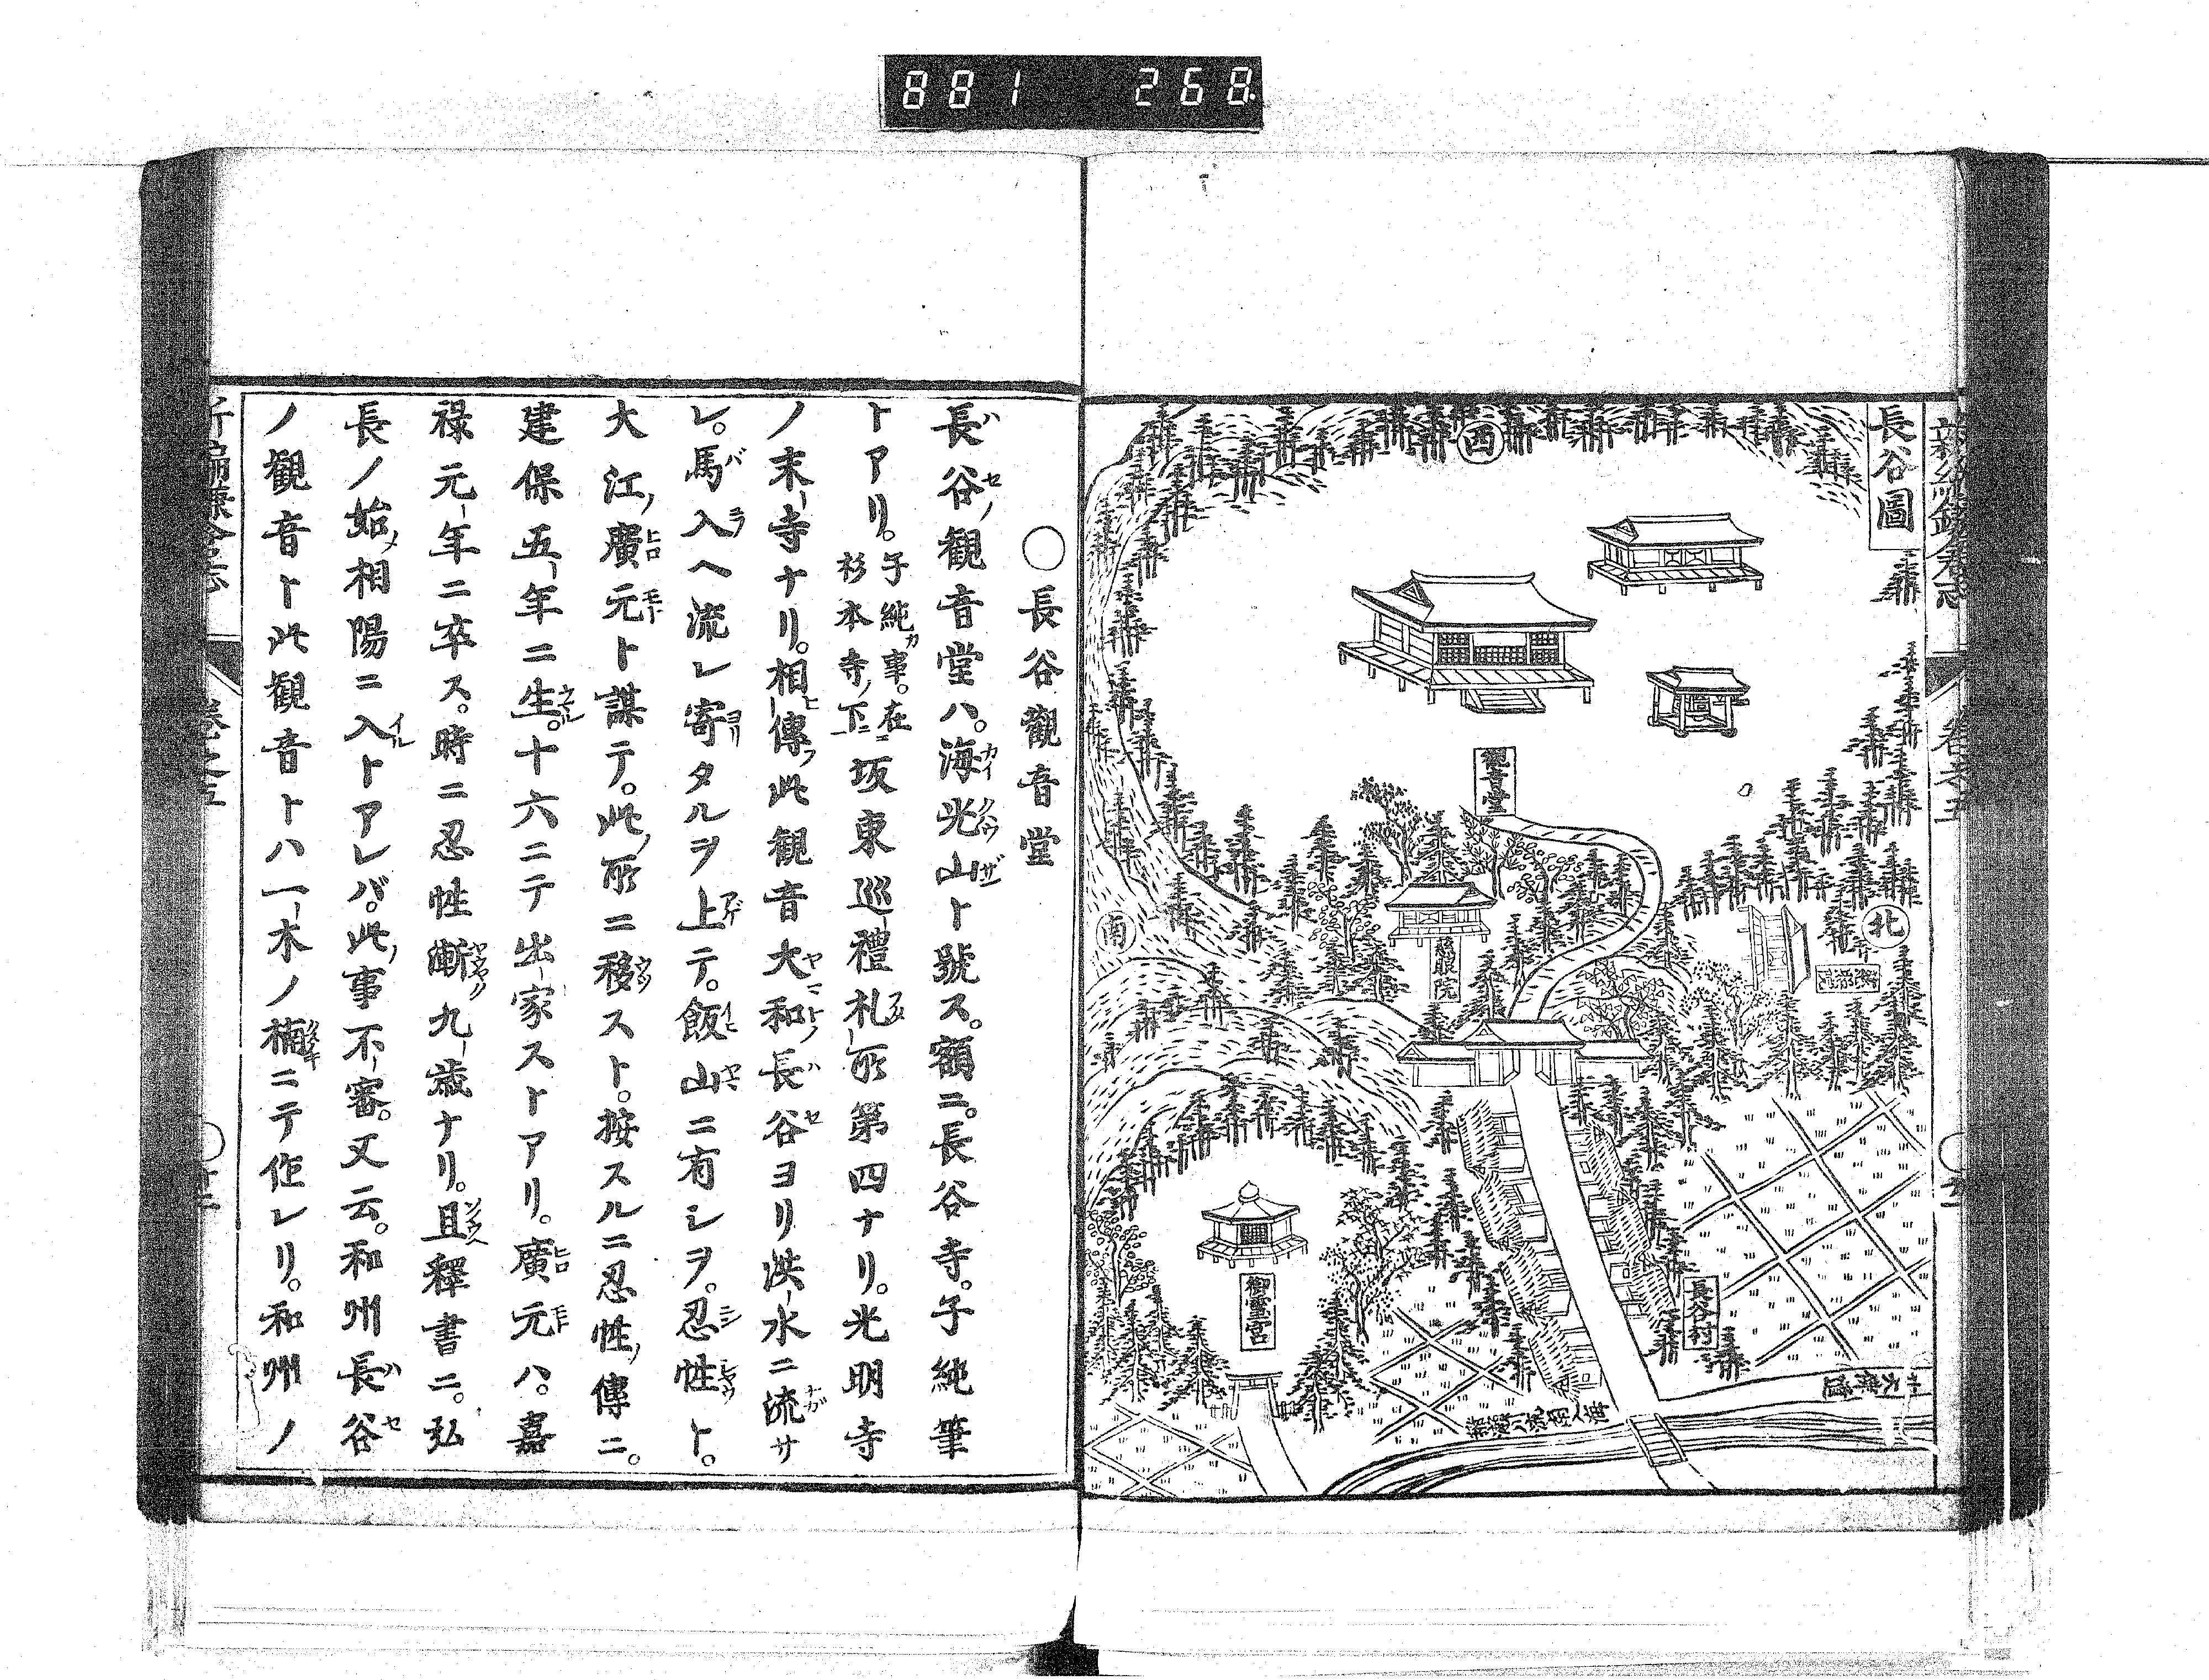 881 268
長谷圖
西
北
南
觀音堂
慈眼院
御霊宮
長谷村
○長谷觀音堂
長谷ノ観音堂ハ。海光山ト號ス。額ニ。長谷寺。子純筆
トアリ。子純ガ事。在
杉本寺ノ下ニ
坂東巡禮札所第四ナリ。光明寺
ノ末寺ナリ。相傳フ此観音大和ノ長谷ヨリ洪水ニ流サ
レ。馬入ヘ流レ寄タルヲ上テ。飯山ニ有シヲ。忍性ト。
大江ノ廣元ト謀テ。此ノ所ニ移スト。按スルニ忍性ノ傳ニ。
建保五年ニ生。十六ニテ出家ストアリ。廣元ハ。嘉
禄元年ニ卒ス。時ニ忍性漸九歳ナリ。且釋書ニ。弘
長ノ始メ相陽ニ入トアレバ。此ノ事不審。又云。和州長谷
ノ観音ト此観音トハ一木ノ楠ニテ作レリ。和州ノ